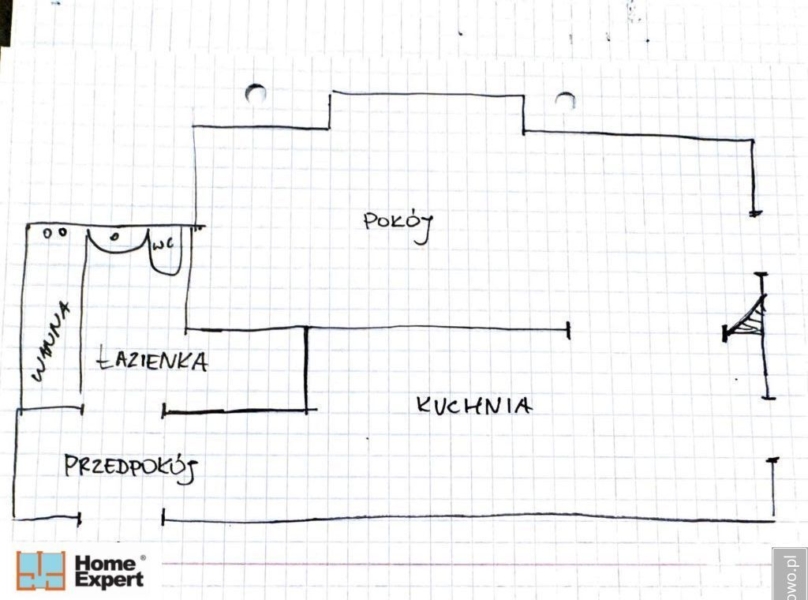 POKÓJ
WC
WANNA
ŁAZIENKA
KUCHNIA
PRZEDPOKÓJ
Home
Expert®
owo.pl